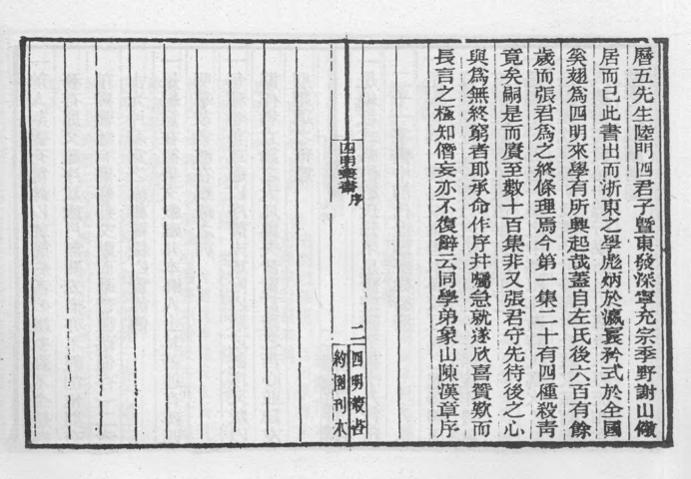 曆五先生陸門四君子暨東發深寧充宗季野謝山儆
居而已此書出而浙東之學彪炳於瀛寰矜式於全國
奚翅爲四明來學有所興起哉蓋自左氏後六百有餘
歲而張君爲之終條理焉今第一集二十有四種殺靑
竟矣嗣是而賡至數十百集非又張君守先待後之心
與爲無終窮者耶承命作序幷囑急就遂欣喜贊歎而
長言之極知僭妄亦不復辭云同學弟象山陳漢章序
四明叢書
序
二
四明叢書
約園刊本